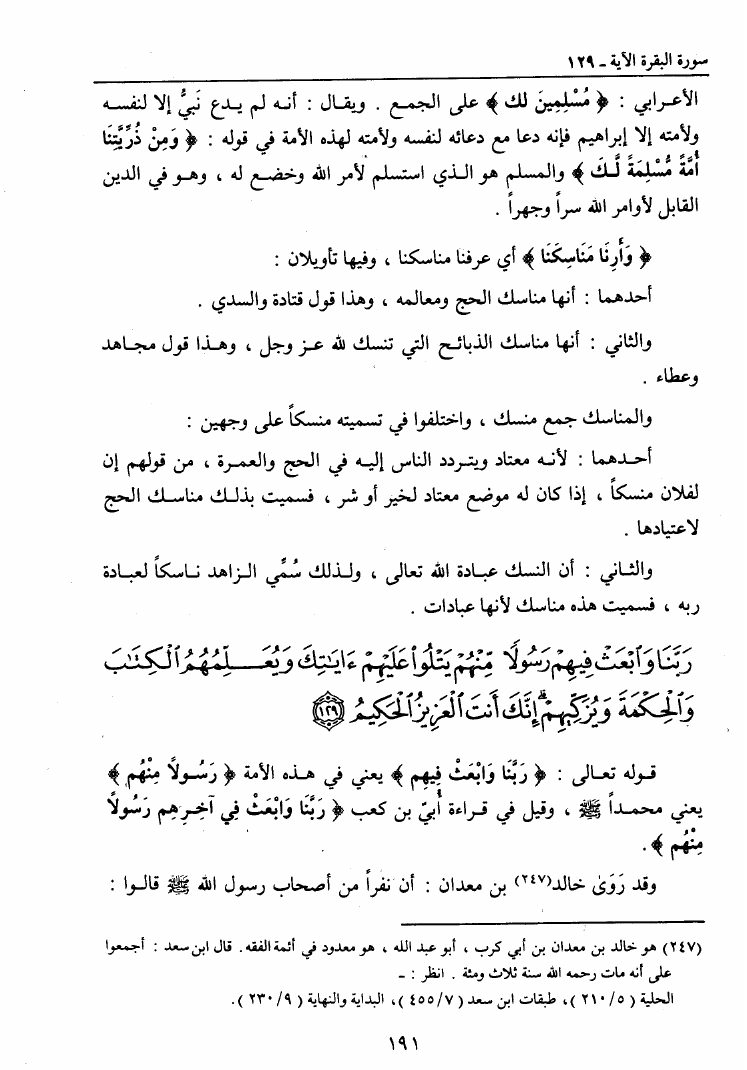 سورة البقرة الآية ـ ١٢٩
الأعرابي : ﴿ مُسْلِمِينَ لك ﴾ على الجمع . ويقال : أنه لم يدع نَبيٌّ إلا لنفسه
ولأمته إلا إبراهيم فإنه دعا مع دعائه لنفسه ولأمته لهذه الأمة في قوله : ﴿ وَمِنْ ذُرِّيَّتِنَا
أُمَّةً مُسْلِمَةً لَّكَ ﴾ والمسلم هو الذي استسلم لأمر الله وخضع له ، وهو في الدين
القابل لأوامر الله سراً وجهراً .
﴿ وَأَرِنَا مَنَاسِكَنَا ﴾ أي عرفنا مناسكنا ، وفيها تأويلان :
أحدهما : أنها مناسك الحج ومعالمه ، وهذا قول قتادة والسدي .
والثاني : أنها مناسك الذبائح التي تنسك لله عز وجل ، وهذا قول مجاهد
وعطاء .
والمناسك جمع منسك ، واختلفوا في تسميته منسكاً على وجهين :
أحدهما : لأنه معتاد ويتردد الناس إليه في الحج والعمرة ، من قولهم إن
لفلان منسكاً ، إذا كان له موضع معتاد لخير أو شر ، فسميت بذلك مناسك الحج
لاعتيادها .
والثاني : أن النسك عبادة الله تعالى ، ولذلك سُمِّي الزاهد ناسكاً لعبادة
ربه ، فسميت هذه مناسك لأنها عبادات .
رَبَّنَا وَٱبْعَثْ فِيهِمْ رَسُولًا مِّنْهُمْ يَتْلُوا۟ عَلَيْهِمْ ءَايَٰتِكَ وَيُعَلِّمُهُمُ ٱلْكِتَٰبَ
وَٱلْحِكْمَةَ وَيُزَكِّيهِمْ ۚ إِنَّكَ أَنتَ ٱلْعَزِيزُ ٱلْحَكِيمُ ١٢٩
قوله تعالى : ﴿ رَبَّنَا وَابْعَثْ فِيهِم ﴾ يعني في هذه الأمة ﴿ رَسُولاً مِنْهُم ﴾
يعني محمداً ﷺ ، وقيل في قراءة أُبيّ بن كعب ﴿ رَبَّنَا وَابْعَثْ فِي آخِرِهِم رَسُولاً
مِنْهُم ﴾ .
وقد رَوَىٰ خالد(٢٤٧) بن معدان : أن نفراً من أصحاب رسول الله ﷺ قالوا :
(٢٤٧) هو خالد بن معدان بن أبي كرب ، أبو عبد الله ، هو معدود في أئمة الفقه . قال ابن سعد : أجمعوا
على أنه مات رحمه الله سنة ثلاث ومئة . انظر : ـ
الحلية ( ٢١٠/٥ )، طبقات ابن سعد ( ٤٥٥/٧ )، البداية والنهاية ( ٢٣٠/٩ ).
١٩١